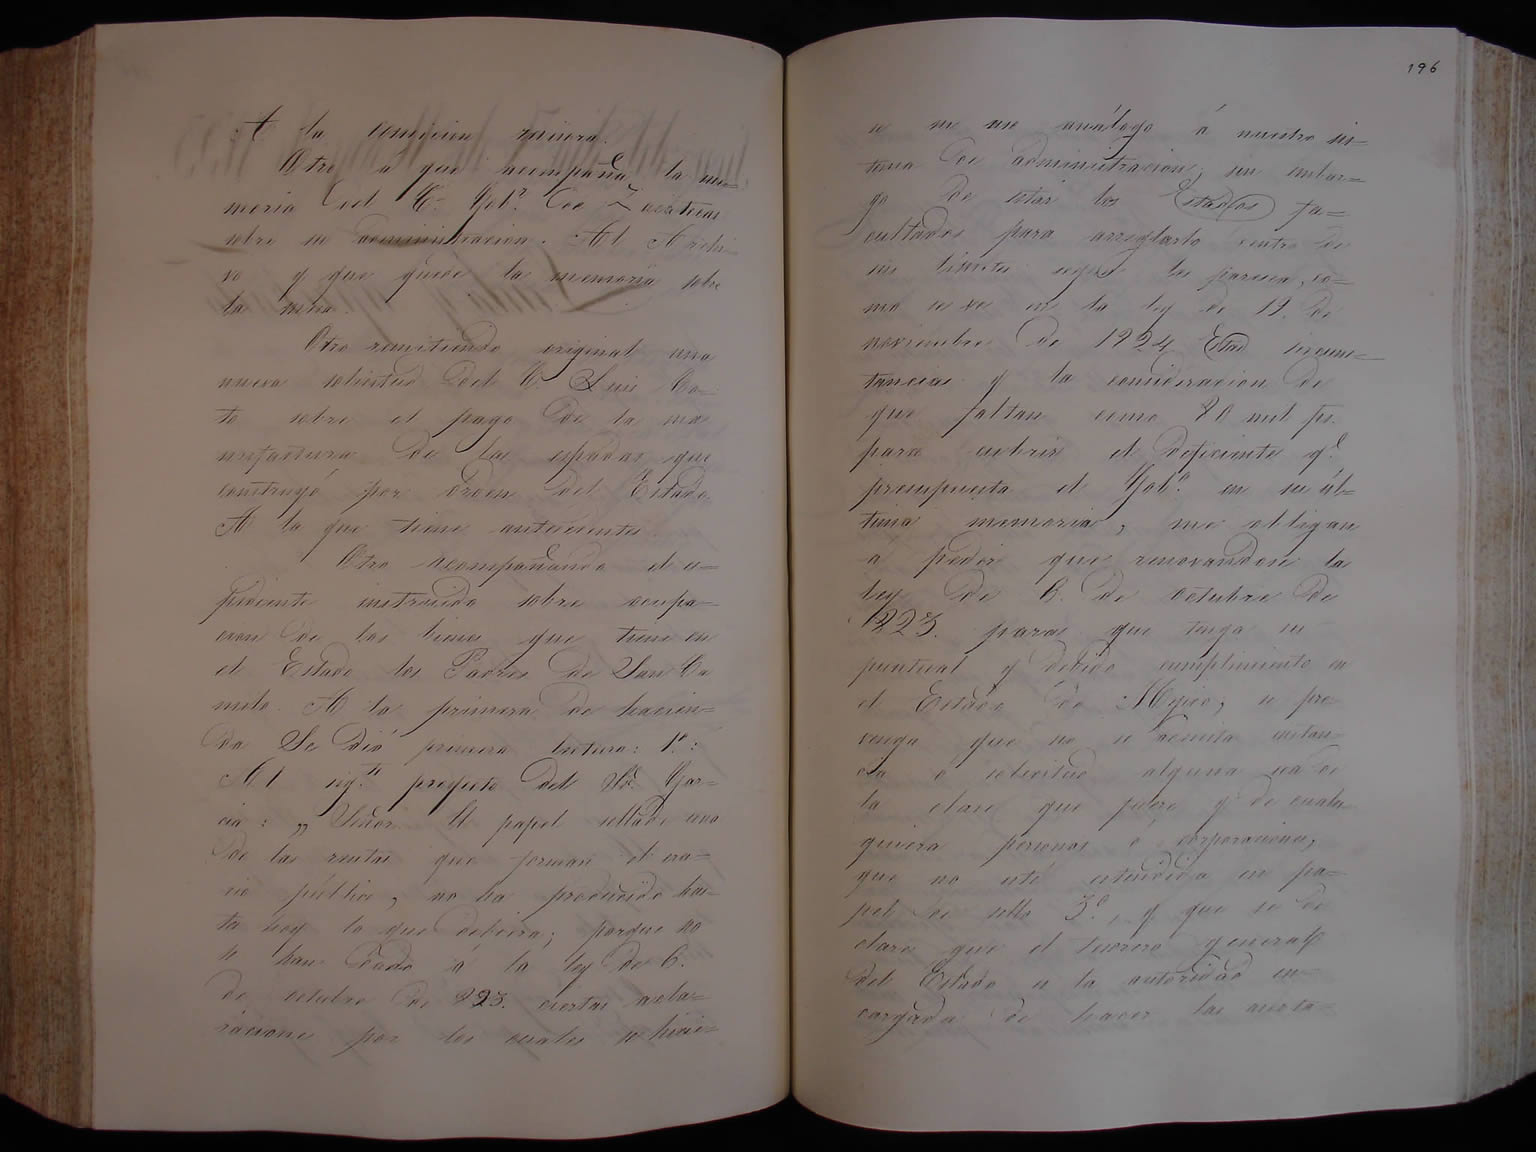 A la comision minera.
Otro a que acompaña la me=
moria del C. Gob.º de Zacatecas
sobre su administracion. Al Archi=
vo y que quede la memoria sobre
la mesa.
Otro remitiendo original una
nueva solicitud del C. Luis Co=
to sobre el pago de la ma
nufactura de las espadas que
construyó por orden del Estado
A la que tiene antecedentes.
Otro acompañando el es=
pediente instruido sobre ocupa=
cion de los bienes que tiene en
el Estado los Padres de San Ca
milo. A la primera de hacien=
da Se dió primera lectura: 1.º:
Al sig.te proyecto del Sr. Gar=
cia: „ Señor. El papel sellado una
de las rentas que forman el era=
rio público, no ha producido has=
ta hoy lo que debiera; porque no
se han dado á la ley de 6.
de octubre de 823. ciertas acla=
raciones por los cuales se hicie=
196
se su uso análogo á nuestro sis=
tema de administracion; sin embar=
go de estar los Estados fa=
cultados para arreglarlo dentro de
sus límites segun les paresca, co=
mo se ve en la ley de 19. de
noviembre de 1924 Esta circuns=
tancias y la consideracion de
que faltan como 80 mil ps.
para cubrir el deficiente q.e
presupuesta el Gob.º en su úl=
tima memoria, me obligan
a pedir que renovandose la
ley de 6. de octubre de
823. para que tenga su
puntual y debido cumplimiento en
el Estado de Mejico; se pre
venga que no se admita instan=
cia ó solicitud alguna sea de
la clase que fuere y de cuala
quiera personas ó corporacion,
que no esté estendida en pa=
pel de sello 3.º, y que se de
clare que el tesorero general
del Estado es la autoridad en=
cargada de hacer las anota=